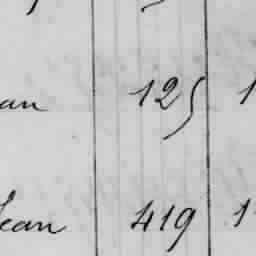 an 125 1
Jean 419 1